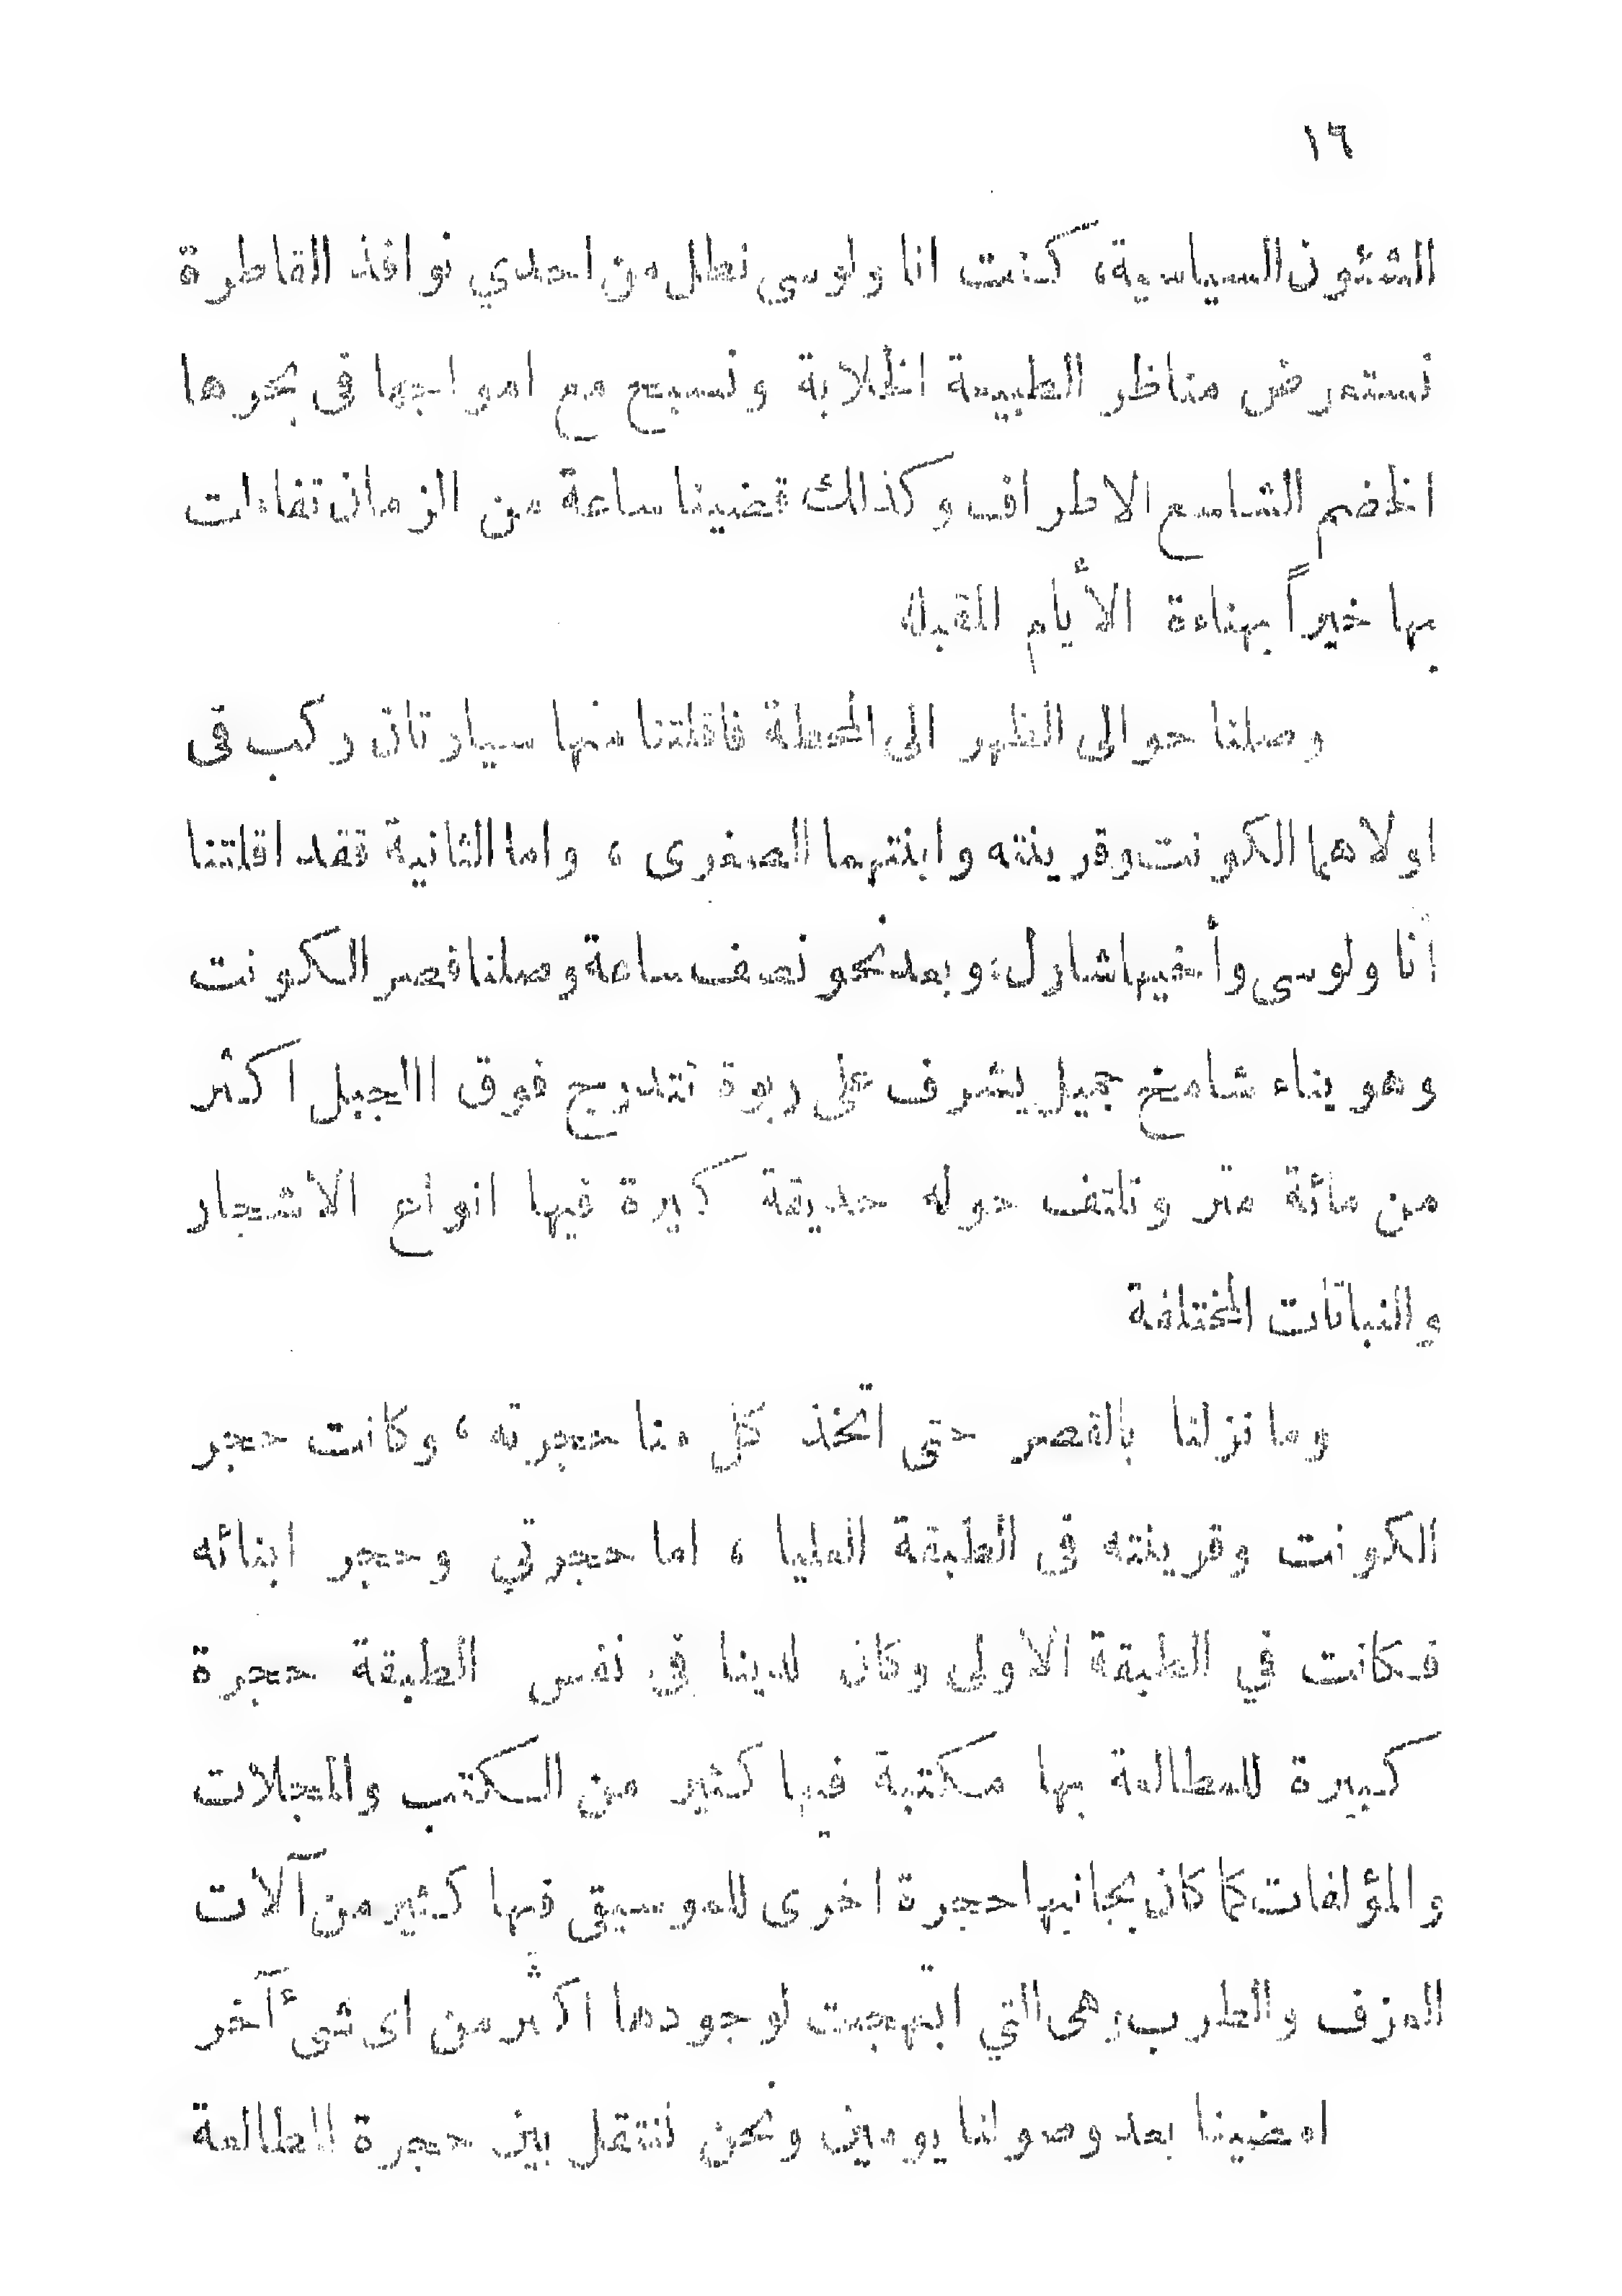 ١٦
الشئون السياسية، كنت انا ولوسى نطل من احدي نوافذ القاطرة
نستعرض مناظر الطبيعة الخلابة ونسبح مع امواجها فى بحرها
الخضم الشاسع الاطراف وكذلك قضينا ساعة من الزمان تفاءلت
بها خيراً بهناءة الأيام المقبلة
وصلنا حوالى الظهر الى المحطة فاقلتنا منها سيارتان ركب فى
اولاهما الكونت وقرينته وابنتهما الصغرى ، واما الثانية فقد اقلتنا
أنا ولوسى وأخيها شارل، وبعد نحو نصف ساعة وصلنا قصر الكونت
وهو بناء شامخ جميل يشرف على ربوة تتدرج فوق االجبل اكثر
من مائة متر وتلتف حوله حديقة كبيرة فيها انواع الاشجار
والنباتات المختلفة
وما نزلنا بالقصر حتى اتخذ كل منا حجرته ، وكانت حجر
الكونت وقرينته فى الطبقة العليا ، اما حجرتي وحجر ابنائه
فكانت في الطبقة الاولى وكان لدينا فى نفس الطبقة حجرة
كبيرة للمطالعة بها مكتبة فيها كثير من الكتب والمجلات
والمؤلفات كما كان بجانبها حجرة اخرى للموسيقى فيها كثير من آلات
العزف والطرب وهى التي ابتهجت لوجودها اكثر من اى شىء آخر
امضينا بعد وصولنا يومين ونحن ننتقل بين حجرة المطالعة